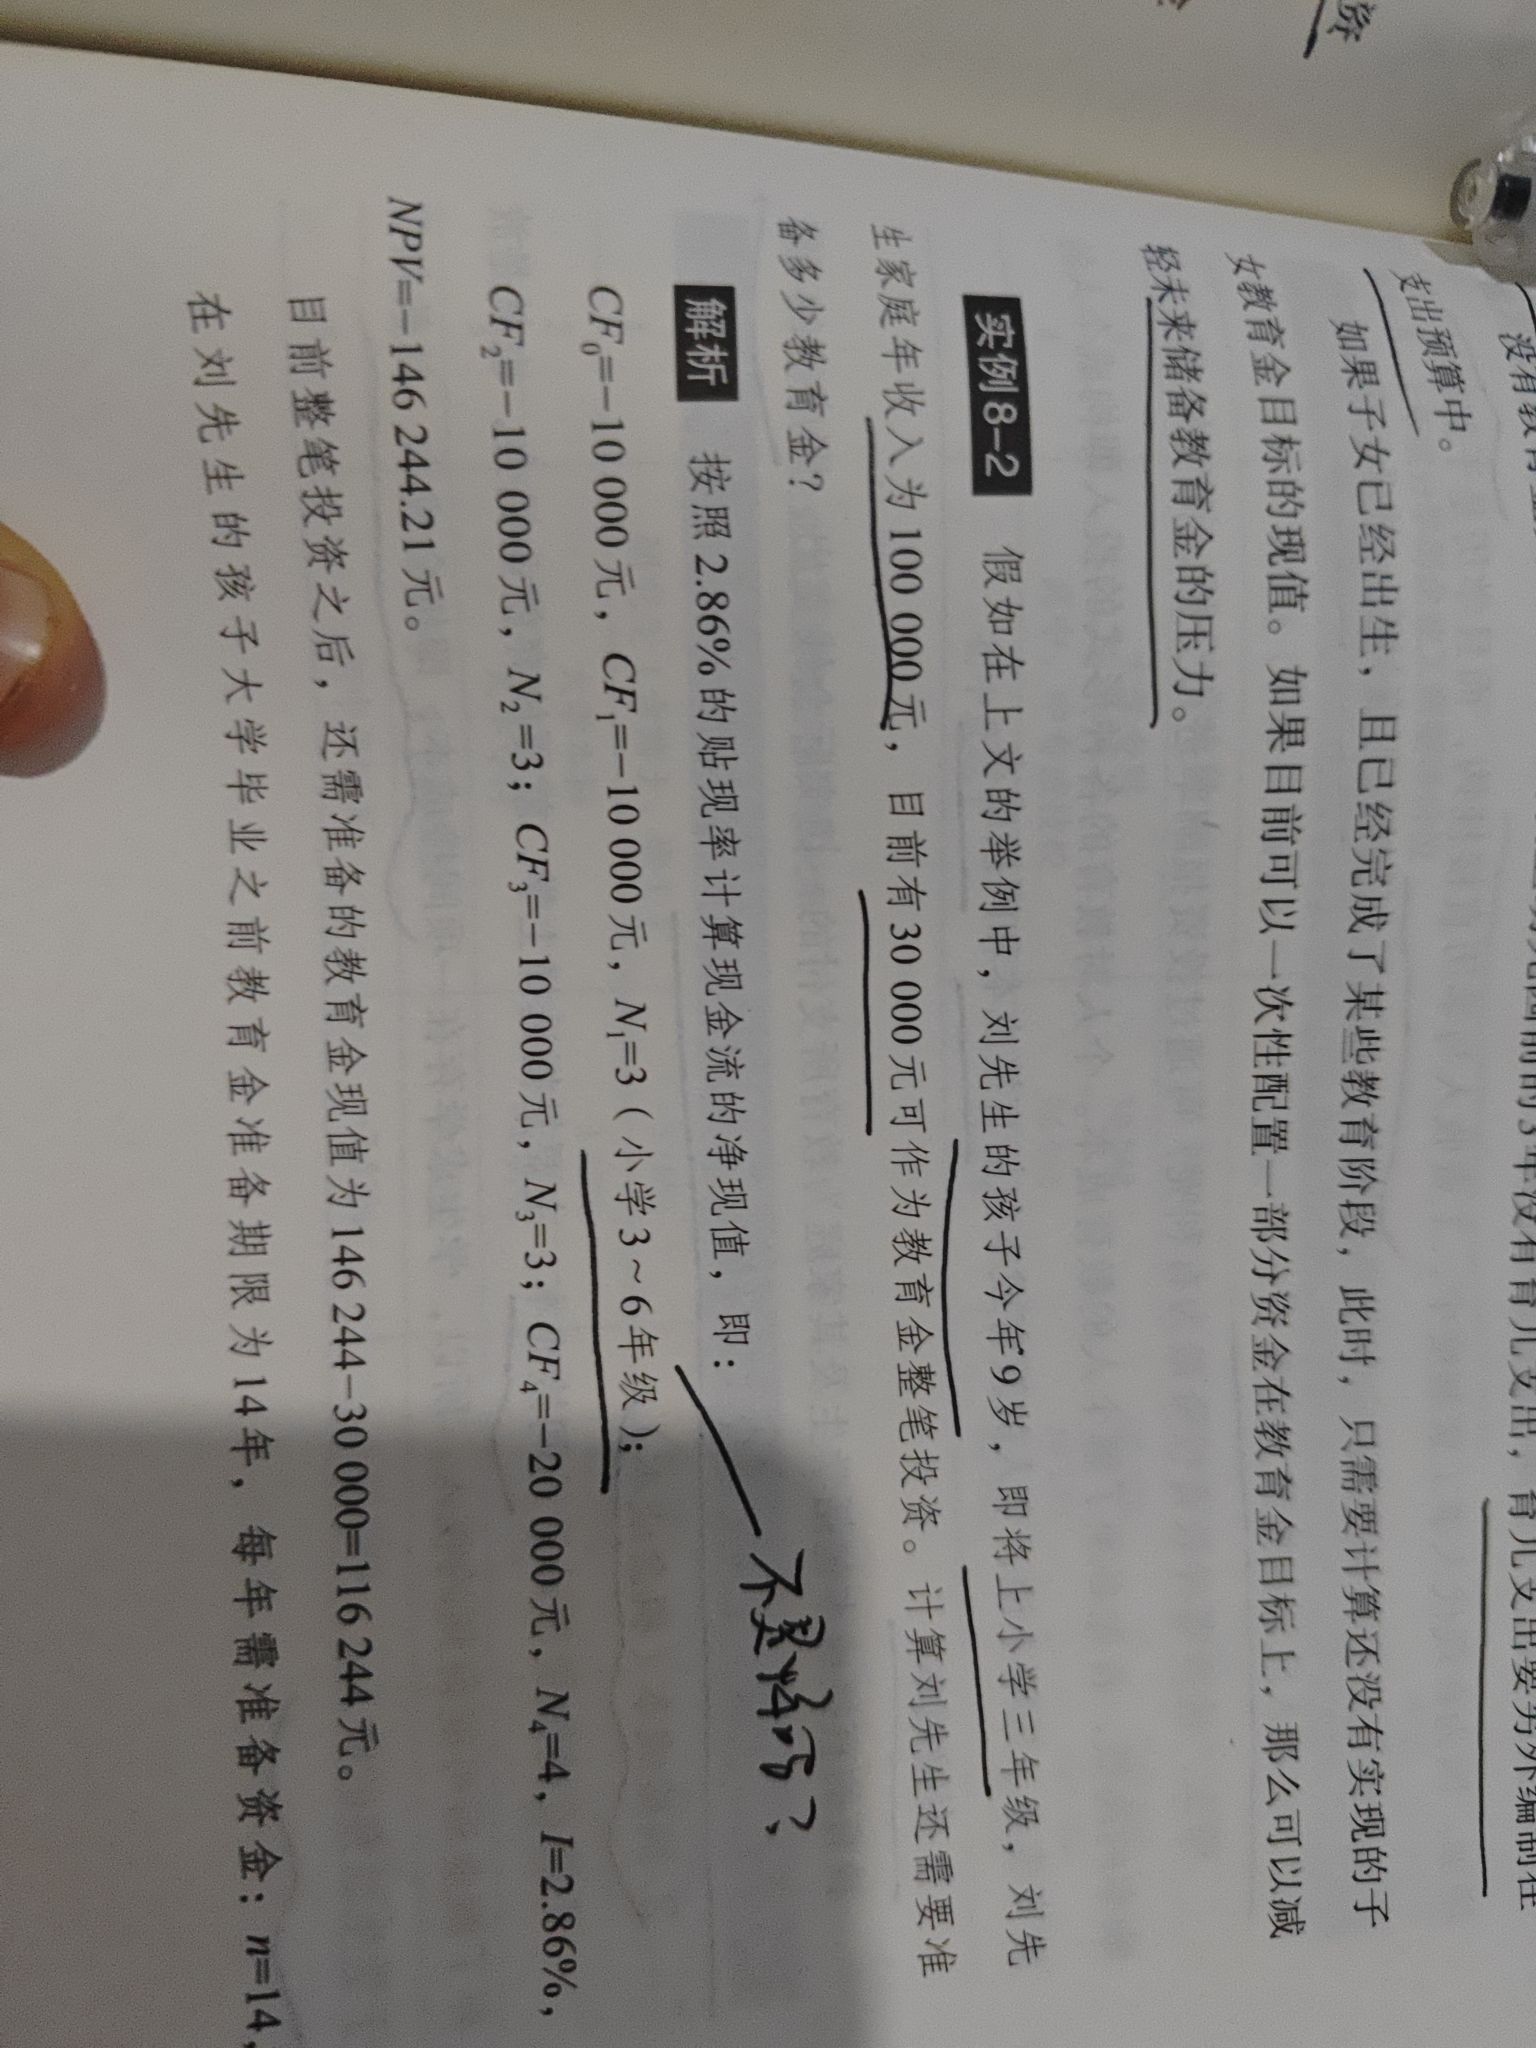 资
没有教育金
支出预算中。
如果子女已经出生，且已经完成了某些教育阶段，此时，只需要计算还没有实现的子
女教育金目标的现值。如果目前可以一次性配置一部分资金在教育金目标上，那么可以减
轻未来储备教育金的压力。
实例8-2 假如在上文的举例中，刘先生的孩子今年9岁，即将上小学三年级，刘先
生家庭年收入为100 000元，目前有30 000元可作为教育金整笔投资。计算刘先生还需要准
备多少教育金？
解析 按照2.86%的贴现率计算现金流的净现值，即：
不是4吗？
CF₀=-10 000元，CF₁=-10 000元，N₁=3（小学3~6年级）；
CF₂=-10 000元，N₂=3；CF₃=-10 000元，N₃=3；CF₄=-20 000元，N₄=4，I=2.86%，
NPV=-146 244.21元。
目前整笔投资之后，还需准备的教育金现值为146 244-30 000=116 244元。
在刘先生的孩子大学毕业之前教育金准备期限为14年，每年需准备资金：n=14，